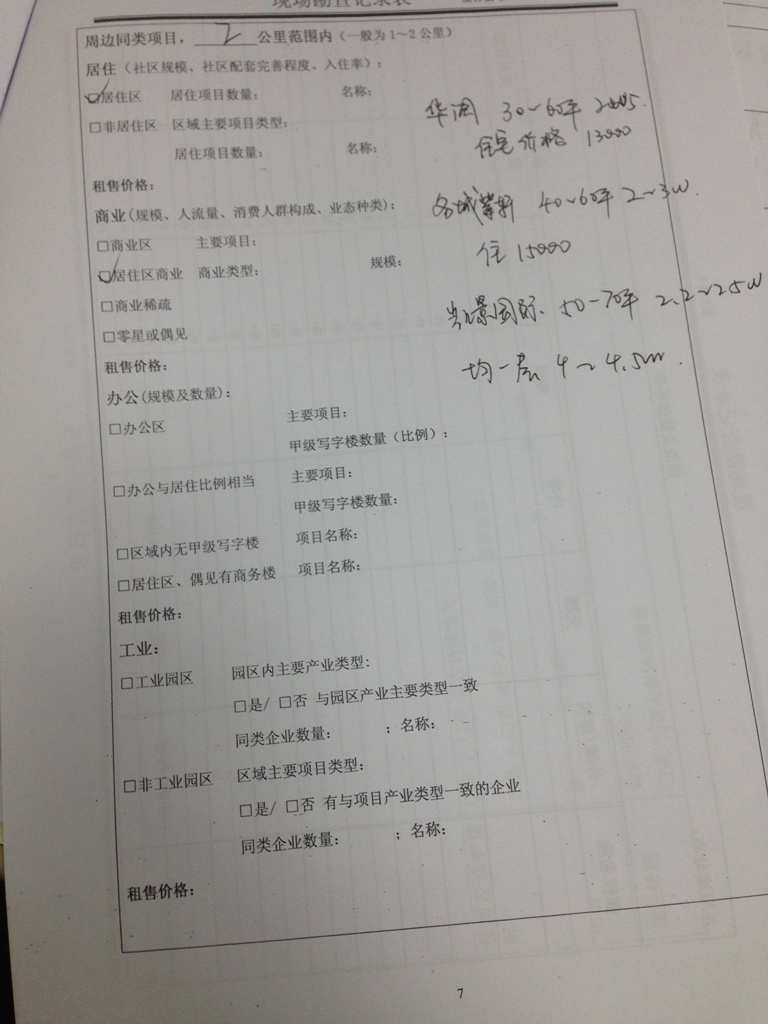 现场勘查记录表
周边同类项目，2公里范围内（一般为1～2公里）
居住（社区规模、社区配套完善程度、入住率）：
☑居住区 居住项目数量： 名称：
华润 30～60平
□非居住区 区域主要项目类型：
住宅价格 13000
居住项目数量： 名称：
租售价格：
商业(规模、人流量、消费人群构成、业态种类)：
40～60平 2～3W
□商业区 主要项目：
住 15000
☑居住区商业 商业类型： 规模：
□商业稀疏
景国际 50-70平 2.2～2.5W
□零星或偶见
租售价格：
均一层 4～4.5m
办公(规模及数量)：
□办公区 主要项目：
甲级写字楼数量（比例）：
□办公与居住比例相当 主要项目：
甲级写字楼数量：
□区域内无甲级写字楼 项目名称：
□居住区、偶见有商务楼 项目名称：
租售价格：
工业：
□工业园区 园区内主要产业类型:
□是/ □否 与园区产业主要类型一致
同类企业数量： ；名称：
□非工业园区 区域主要项目类型：
□是/ □否 有与项目产业类型一致的企业
同类企业数量： ；名称：
租售价格：
7